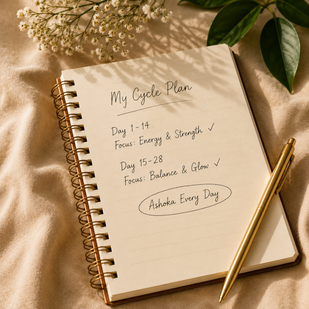 My Cycle Plan
Day 1-14
Focus: Energy & Strength ✓
Day 15-28
Focus: Balance & Glow ✓
Ashoka Every Day